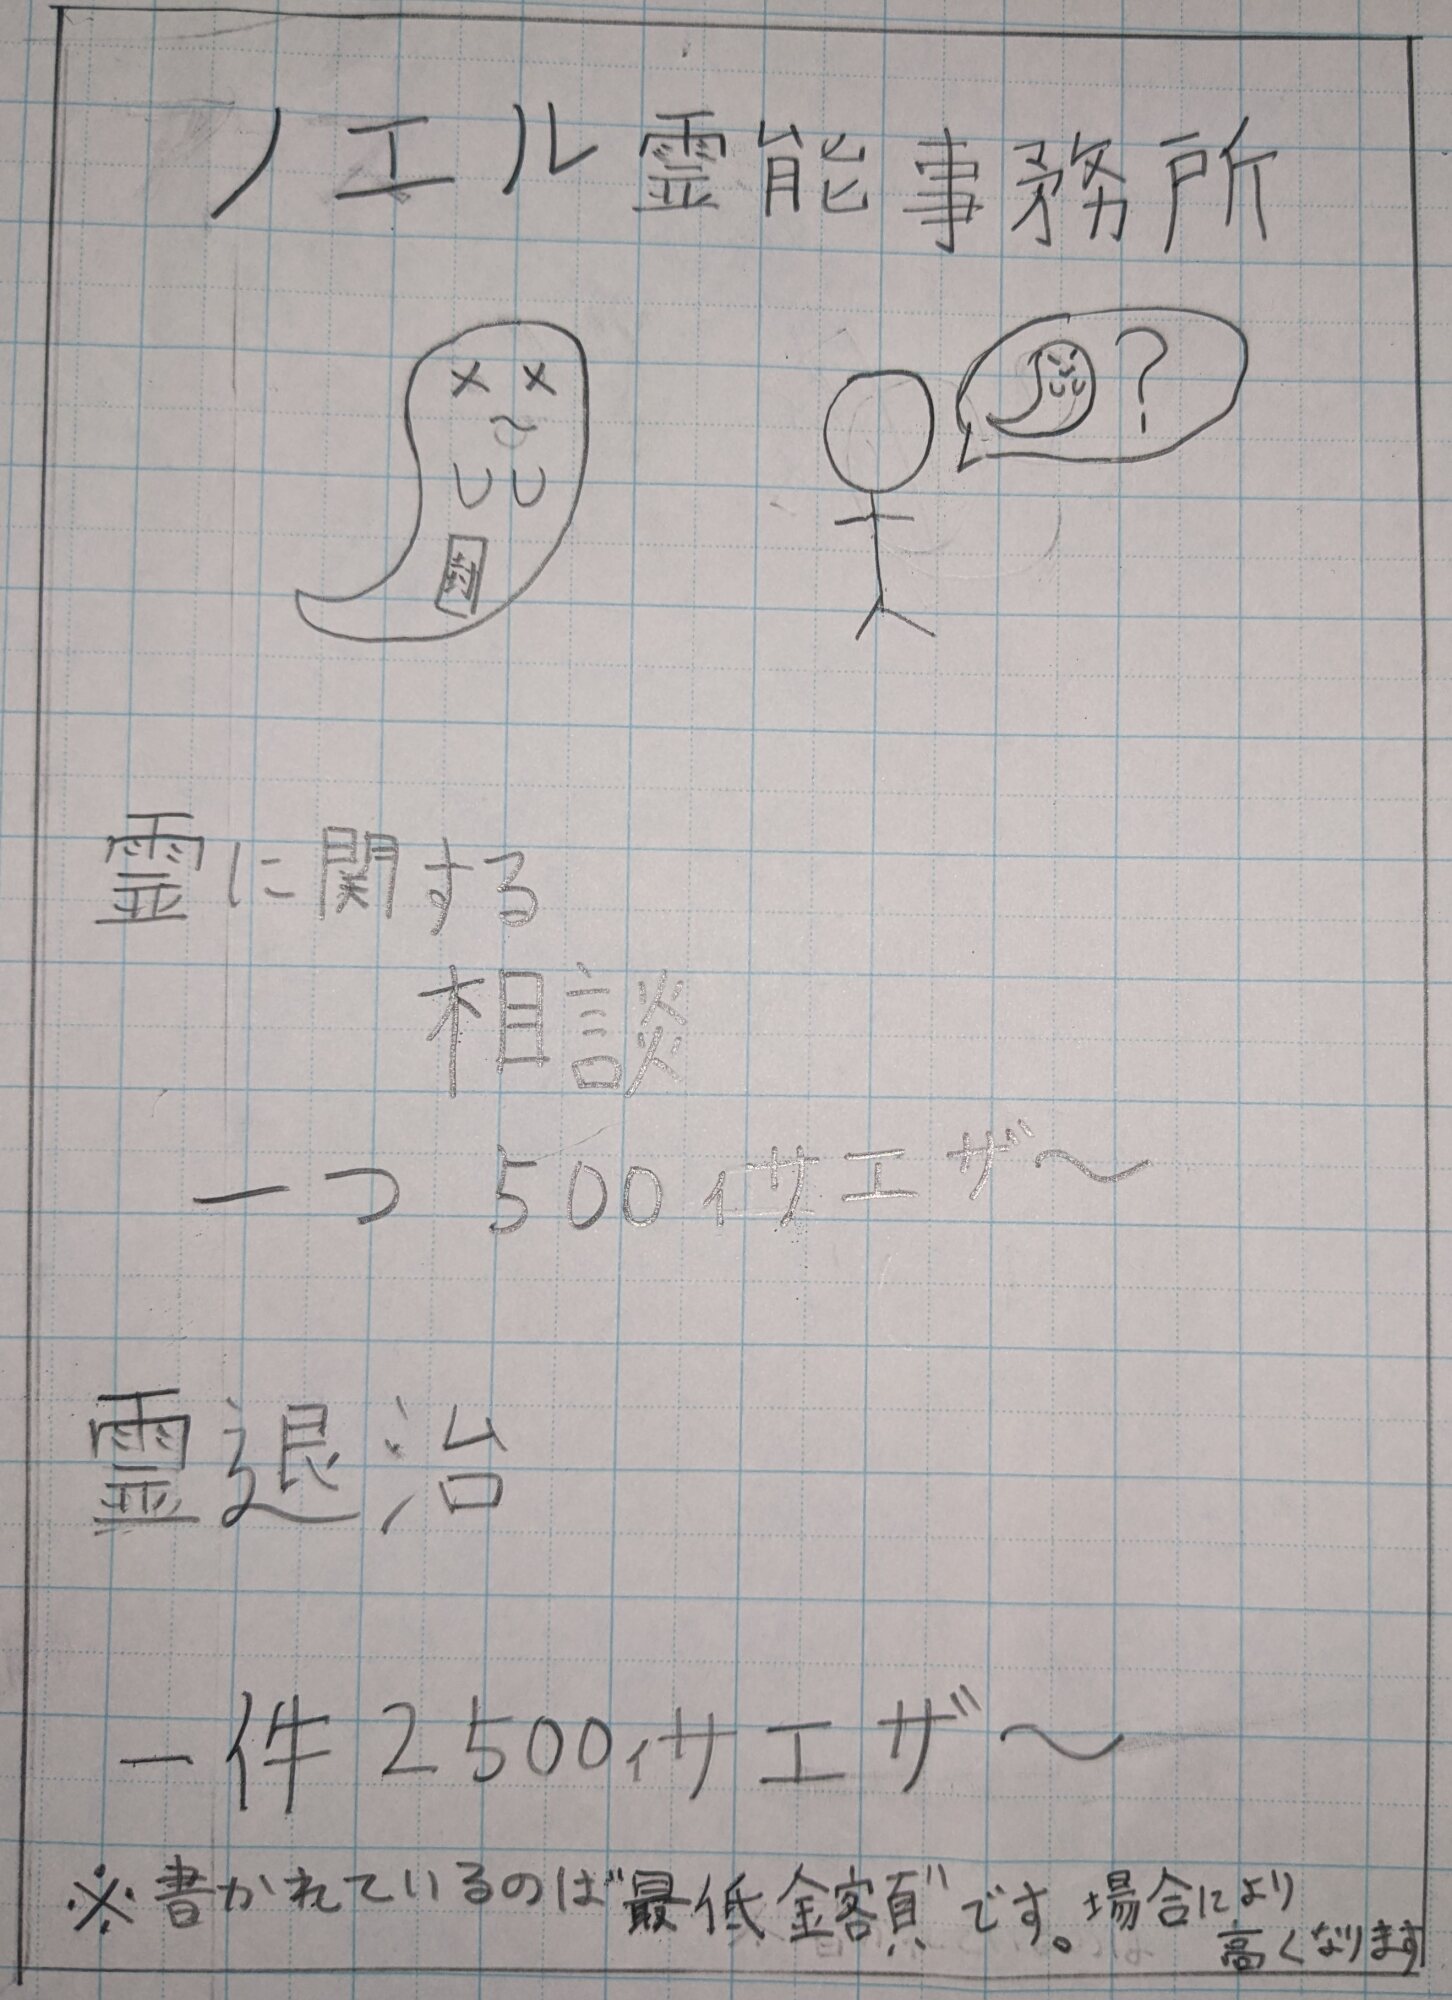 ノエル霊能事務所
?
霊に関する
相談
一つ 500ィサエザ〜
霊退治
一件 2500ィサエザ〜
※書かれているのは"最低金額"です。場合により
高くなります